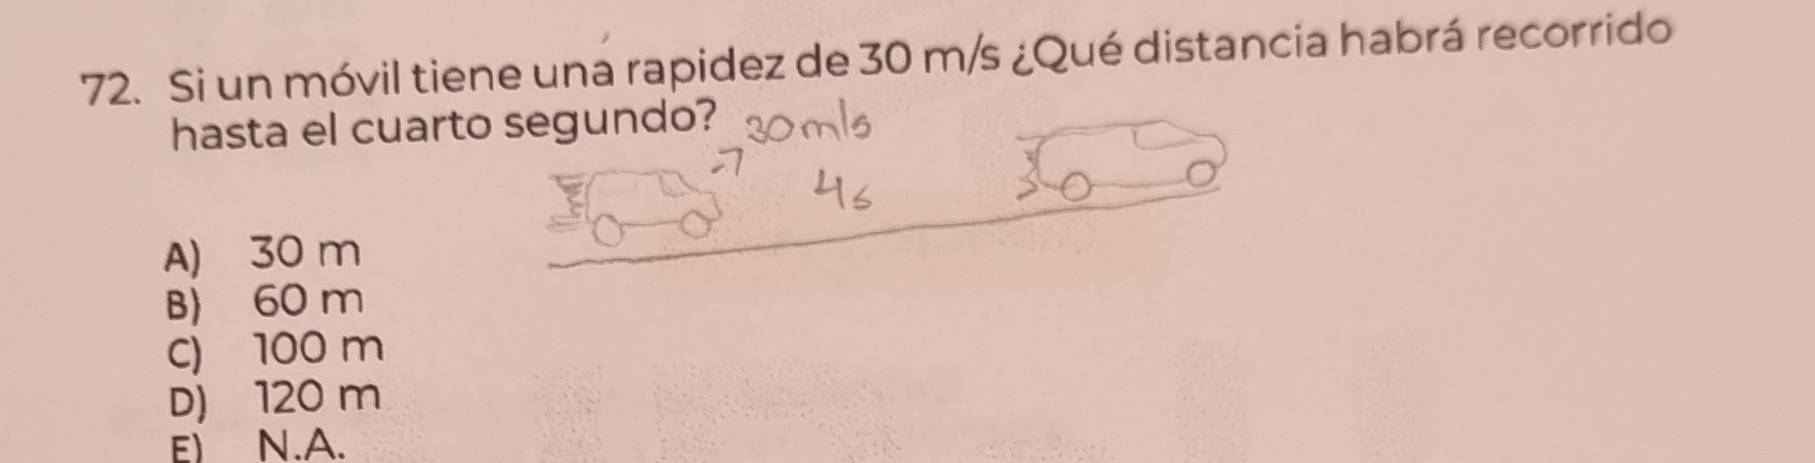 72. Si un móvil tiene una rapidez de 30 m/s ¿Qué distancia habrá recorrido
hasta el cuarto segundo?
30m/s
4s
A) 30 m
B) 60 m
C) 100 m
D) 120 m
E) N.A.